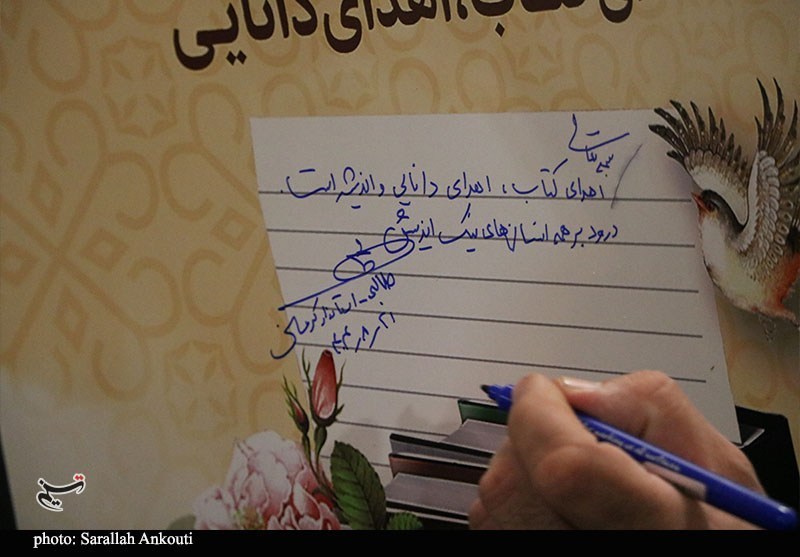 کتاب، اهدای دانایی
بسمه تعالی
اهدای کتاب، اهدای دانایی و اندیشه است.
درود بر همه انسان‌های نیک اندیش
طالبی - استاندار کرمان
۲۱ر۸ر۴۰۳
تسنیم
photo: Sarallah Ankouti